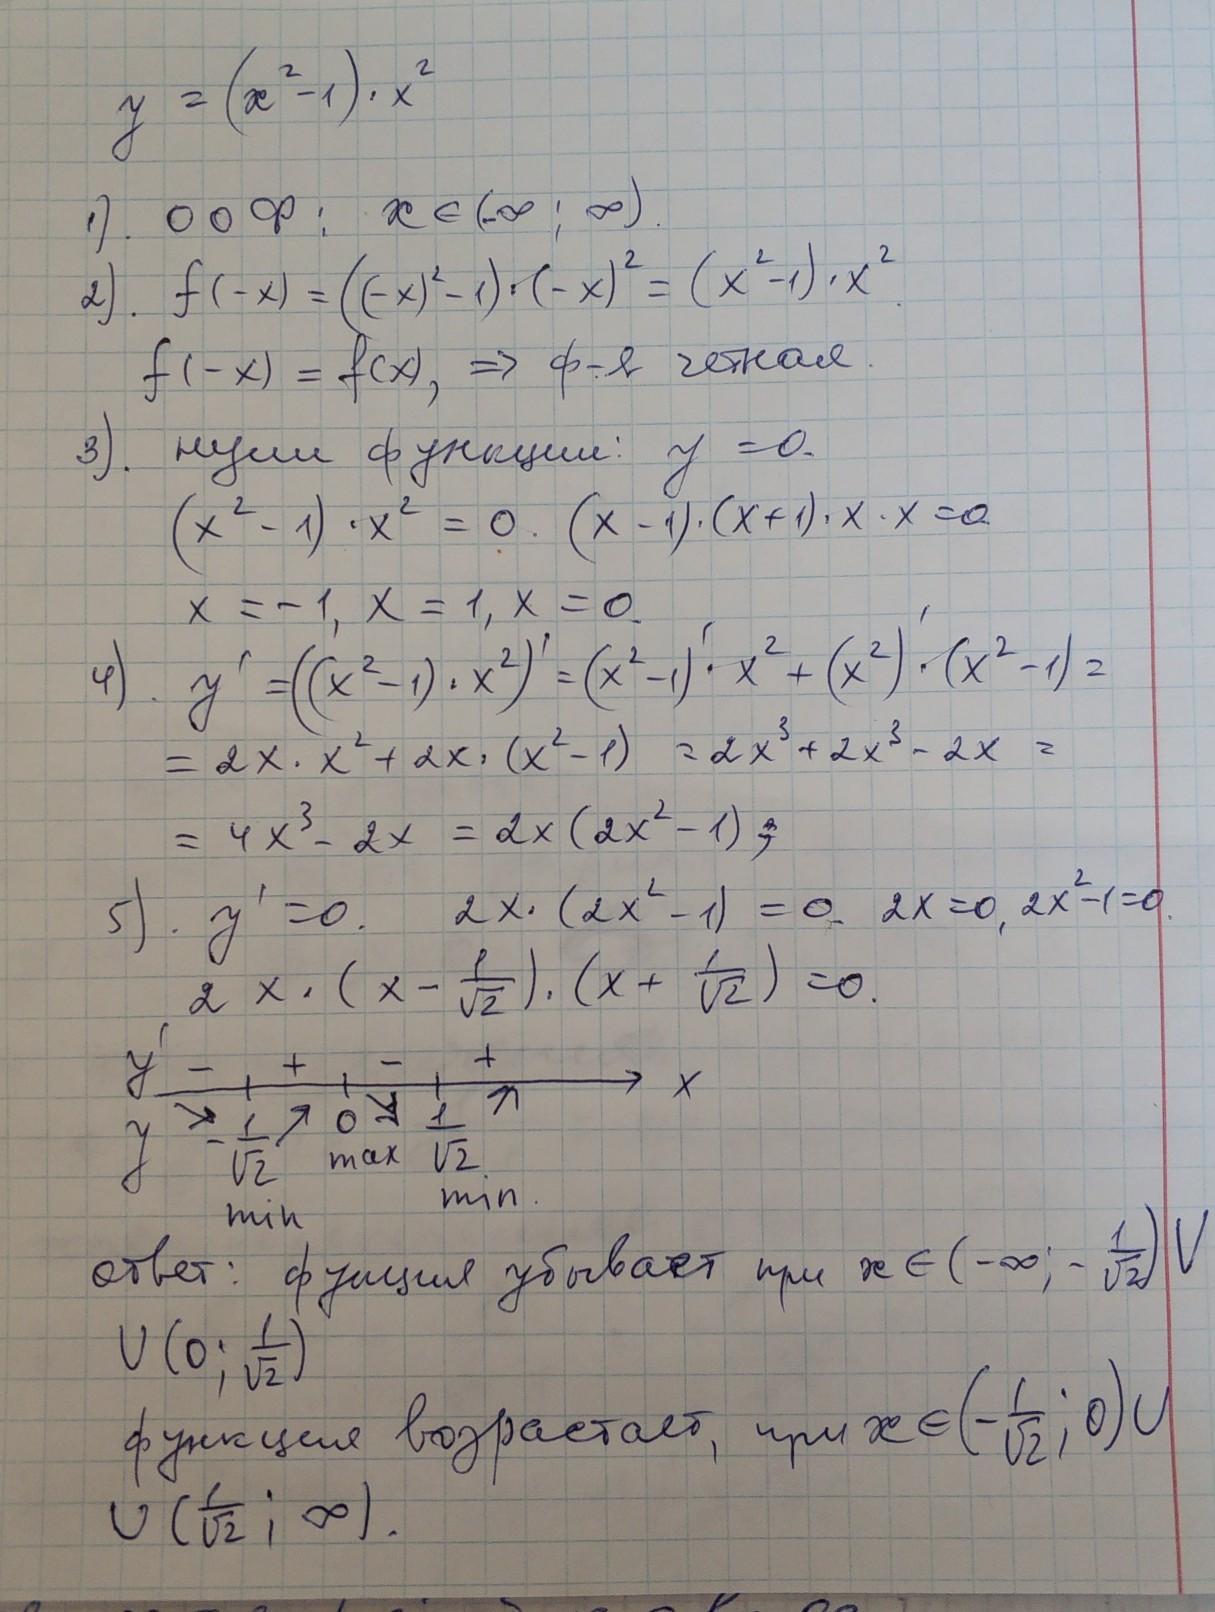 y = (x²-1)·x²
1). ООФ: x∈(-∞; ∞).
2). f(-x) = ((-x)²-1)·(-x)² = (x²-1)·x².
f(-x) = f(x), => ф-я четная.
3). нули функции: y =0.
(x²-1)·x² = 0. (x-1)·(x+1)·x·x=0
x=-1, x=1, x=0.
4). y' =((x²-1)·x²)' =(x²-1)'·x²+(x²)'·(x²-1)=
= 2x·x²+2x·(x²-1) =2x³+2x³-2x =
= 4x³-2x = 2x(2x²-1);
5). y'=0. 2x·(2x²-1) =0. 2x=0, 2x²-1=0.
2x·(x-1/√2)·(x+1/√2)=0.
y' - + - + x
y ↘ -1/√2 ↗ 0 ↘ 1/√2 ↗
min max min.
ответ: функция убывает при x∈(-∞; -1/√2)∪
∪(0; 1/√2)
функция возрастает, при x∈(-1/√2; 0)∪
∪(1/√2; ∞).